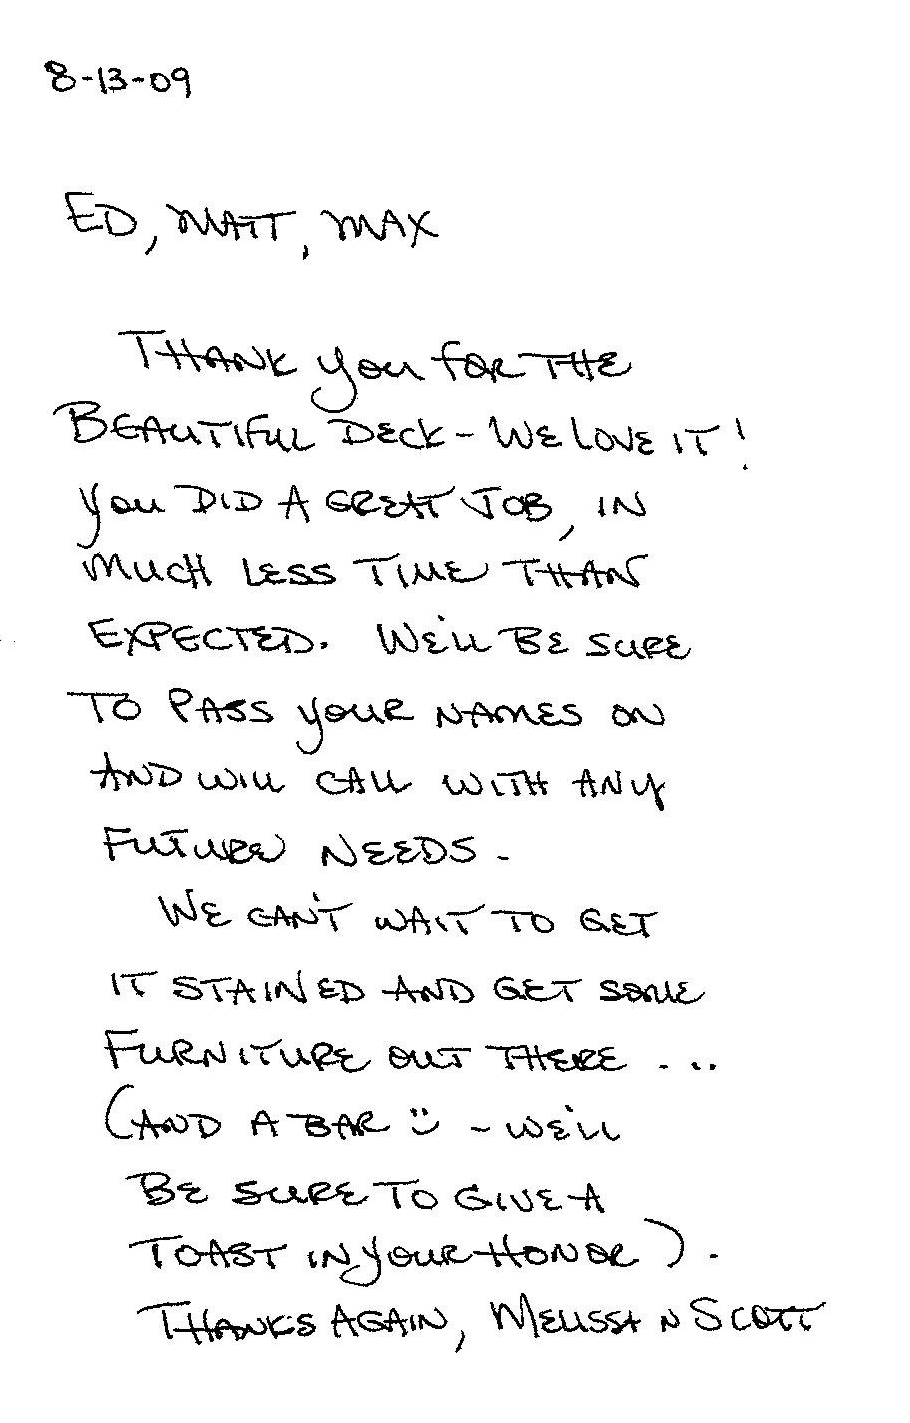 8-13-09
ED, MATT, MAX
THANK you FOR THE
BEAUTIFUL DECK - WE LOVE IT!
you DID A GREAT JOB, IN
MUCH LESS TIME THAN
EXPECTED. WE'LL BE SURE
TO PASS YOUR NAMES ON
AND WILL CALL WITH ANY
FUTURE NEEDS.
WE CAN'T WAIT TO GET
IT STAINED AND GET SOME
FURNITURE OUT THERE ...
(AND A BAR :) - WE'LL
BE SURE TO GIVE A
TOAST IN YOUR HONOR).
THANKS AGAIN, MELISSA N SCOTT